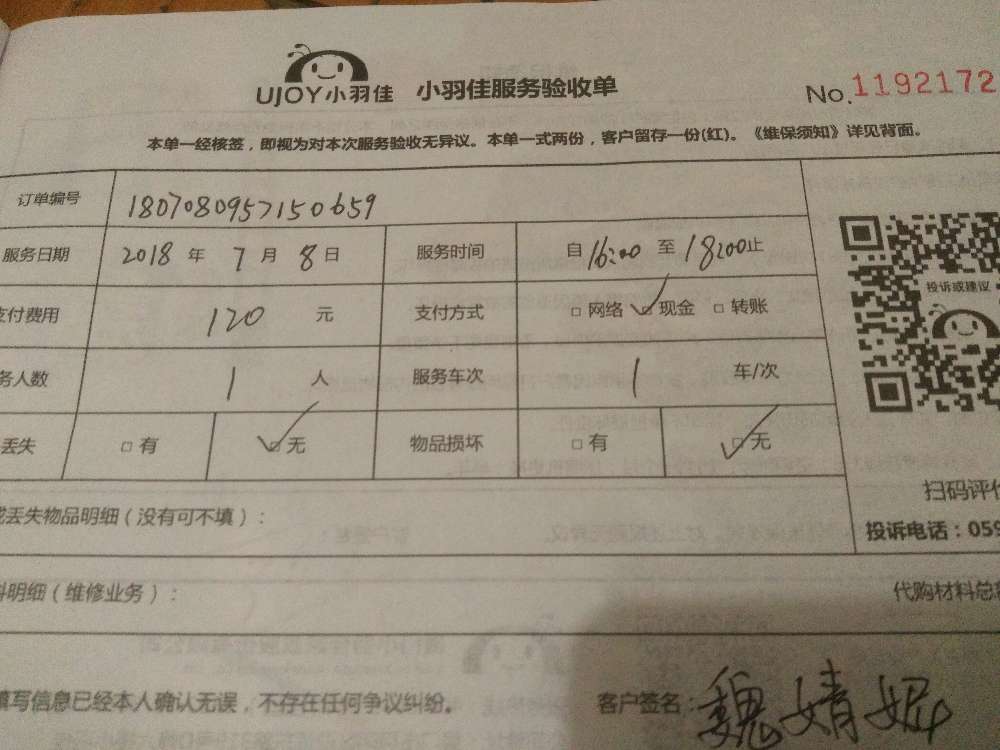 UJOY小羽佳 小羽佳服务验收单 No.1192172
本单一经核签，即视为对本次服务验收无异议。本单一式两份，客户留存一份(红)。《维保须知》详见背面。
订单编号 1807080957150659
服务日期 2018 年 7 月 8 日 服务时间 自 16:00 至 18:00 止
支付费用 120 元 支付方式 □ 网络 □ 现金 □ 转账
务人数 1 人 服务车次 1 车/次
丢失 □ 有 □ 无 物品损坏 □ 有 □ 无
投诉或建议
扫码评价
投诉电话：059
或丢失物品明细（没有可不填）：
料明细（维修业务）： 代购材料总
填写信息已经本人确认无误，不存在任何争议纠纷。 客户签名：魏婧妮